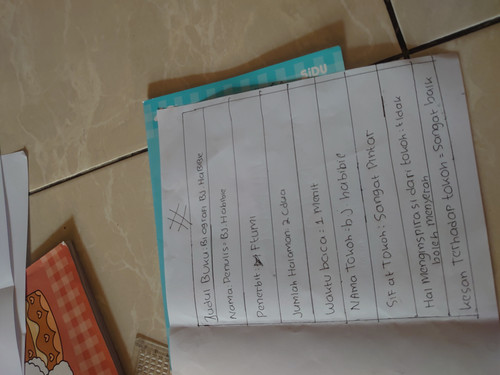 SiDU
#
Judul Buku: Biografi BJ Habibie
Nama Penulis: BJ Habibie
Penerbit: Ftumi
Jumlah Halaman: 2 (dua
Waktu baca: 1 Menit
NAMA Tokoh: bJ habibie
Sifat Tokoh: Sangat Pintar
Hal menginspirasi dari tokoh: tidak
boleh menyerah
kesan Terhadap tokoh = Sangat baik